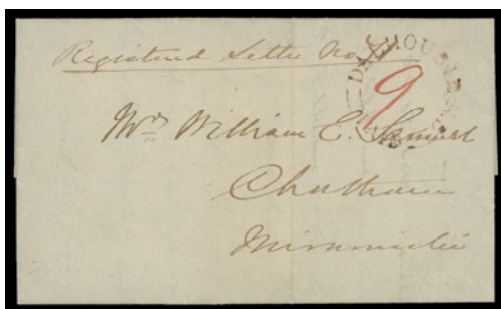 Registered Letter No.
DALHOUSIE N.B.
9
Mr. William E. Samuel
Chatham
Miramichi